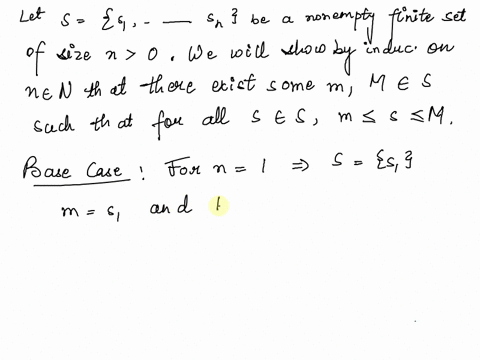 Let S = {s₁, - — sₙ} be a nonempty finite set
of size n > 0. We will show by induc. on
n ∈ N that there exist some m, M ∈ S
such that for all s ∈ S, m ≤ s ≤ M.
Base Case : For n = 1 ⇒ S = {s₁}
m = s₁ and